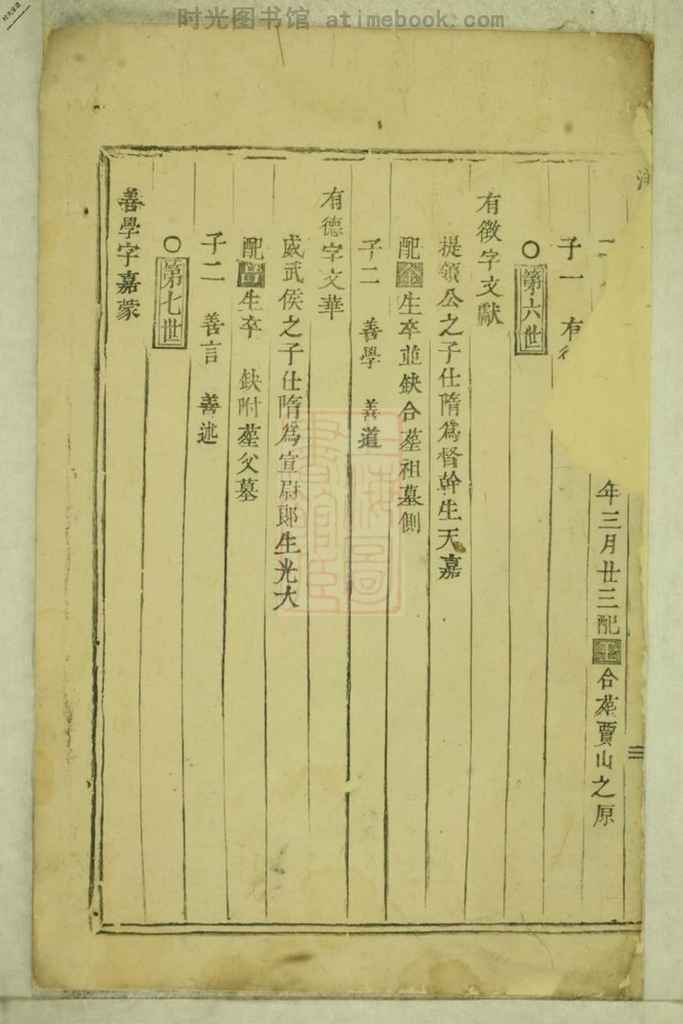 时光图书馆 atimebook.com
年三月廿三配王合墓賈山之原
子一 有
○第六世
有徵字文獻
提領公之子仕隋爲督幹生天嘉
配金生卒並缺合墓祖墓側
子二 善學 善道
有德字文華
威武侯之子仕隋爲宣尉郎生光大
配 生卒 缺附墓父墓
子二 善言 善述
○第七世
善學字嘉蒙